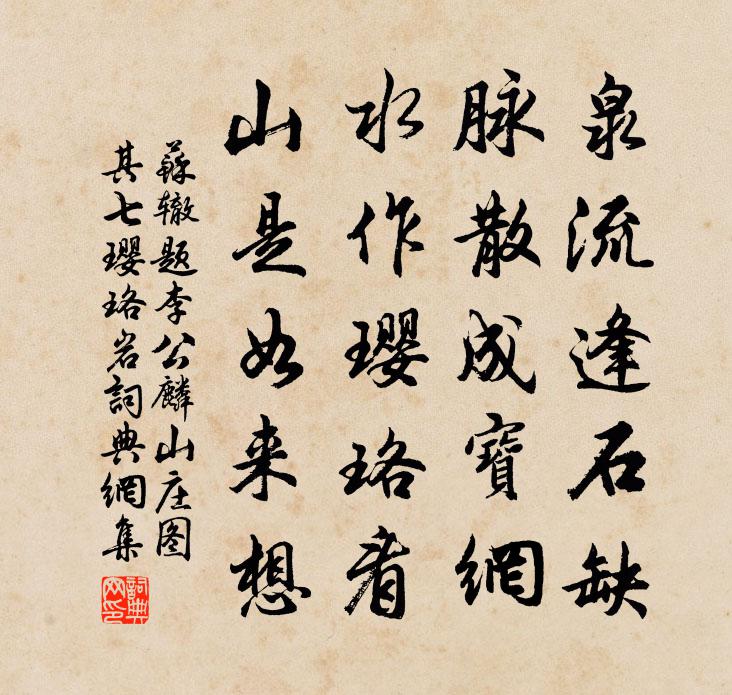 泉流逢石缺
脉散成寶網
水作瓔珞看
山是如来想
蘇辙题李公麟山庄图
其七瓔珞岩詞典網集
詞典
网印